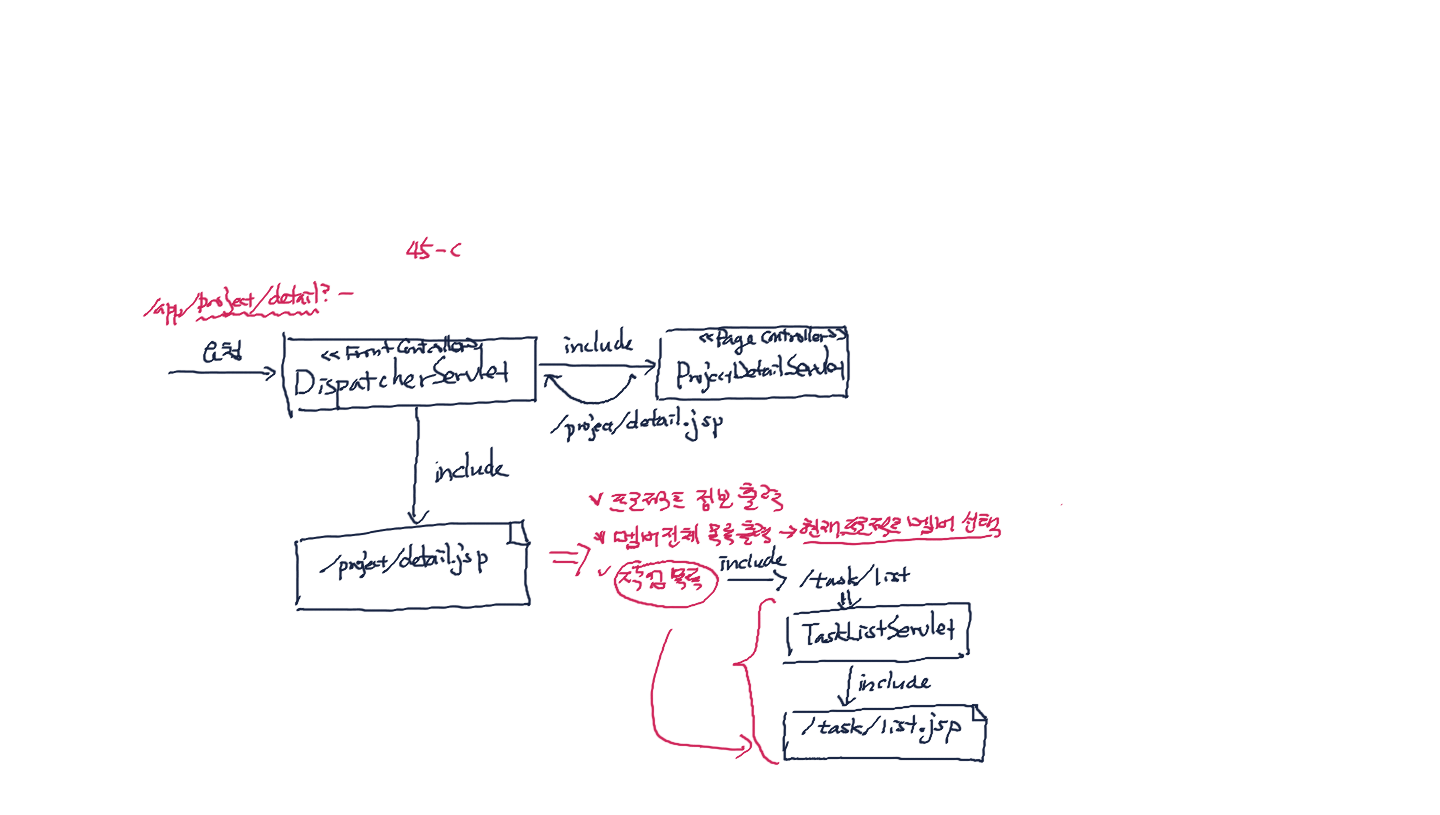 45-c
/app/project/detail? -
요청
<<Front Controller>>
DispatcherServlet
include
<<Page Controller>>
ProjectDetailServlet
/project/detail.jsp
include
/project/detail.jsp
✓ 프로젝트 정보 출력
* 멤버전체 목록출력 → 현재 프로젝트 멤버 선택
✓ 작업목록
include
/task/list
TaskListServlet
include
/task/list.jsp